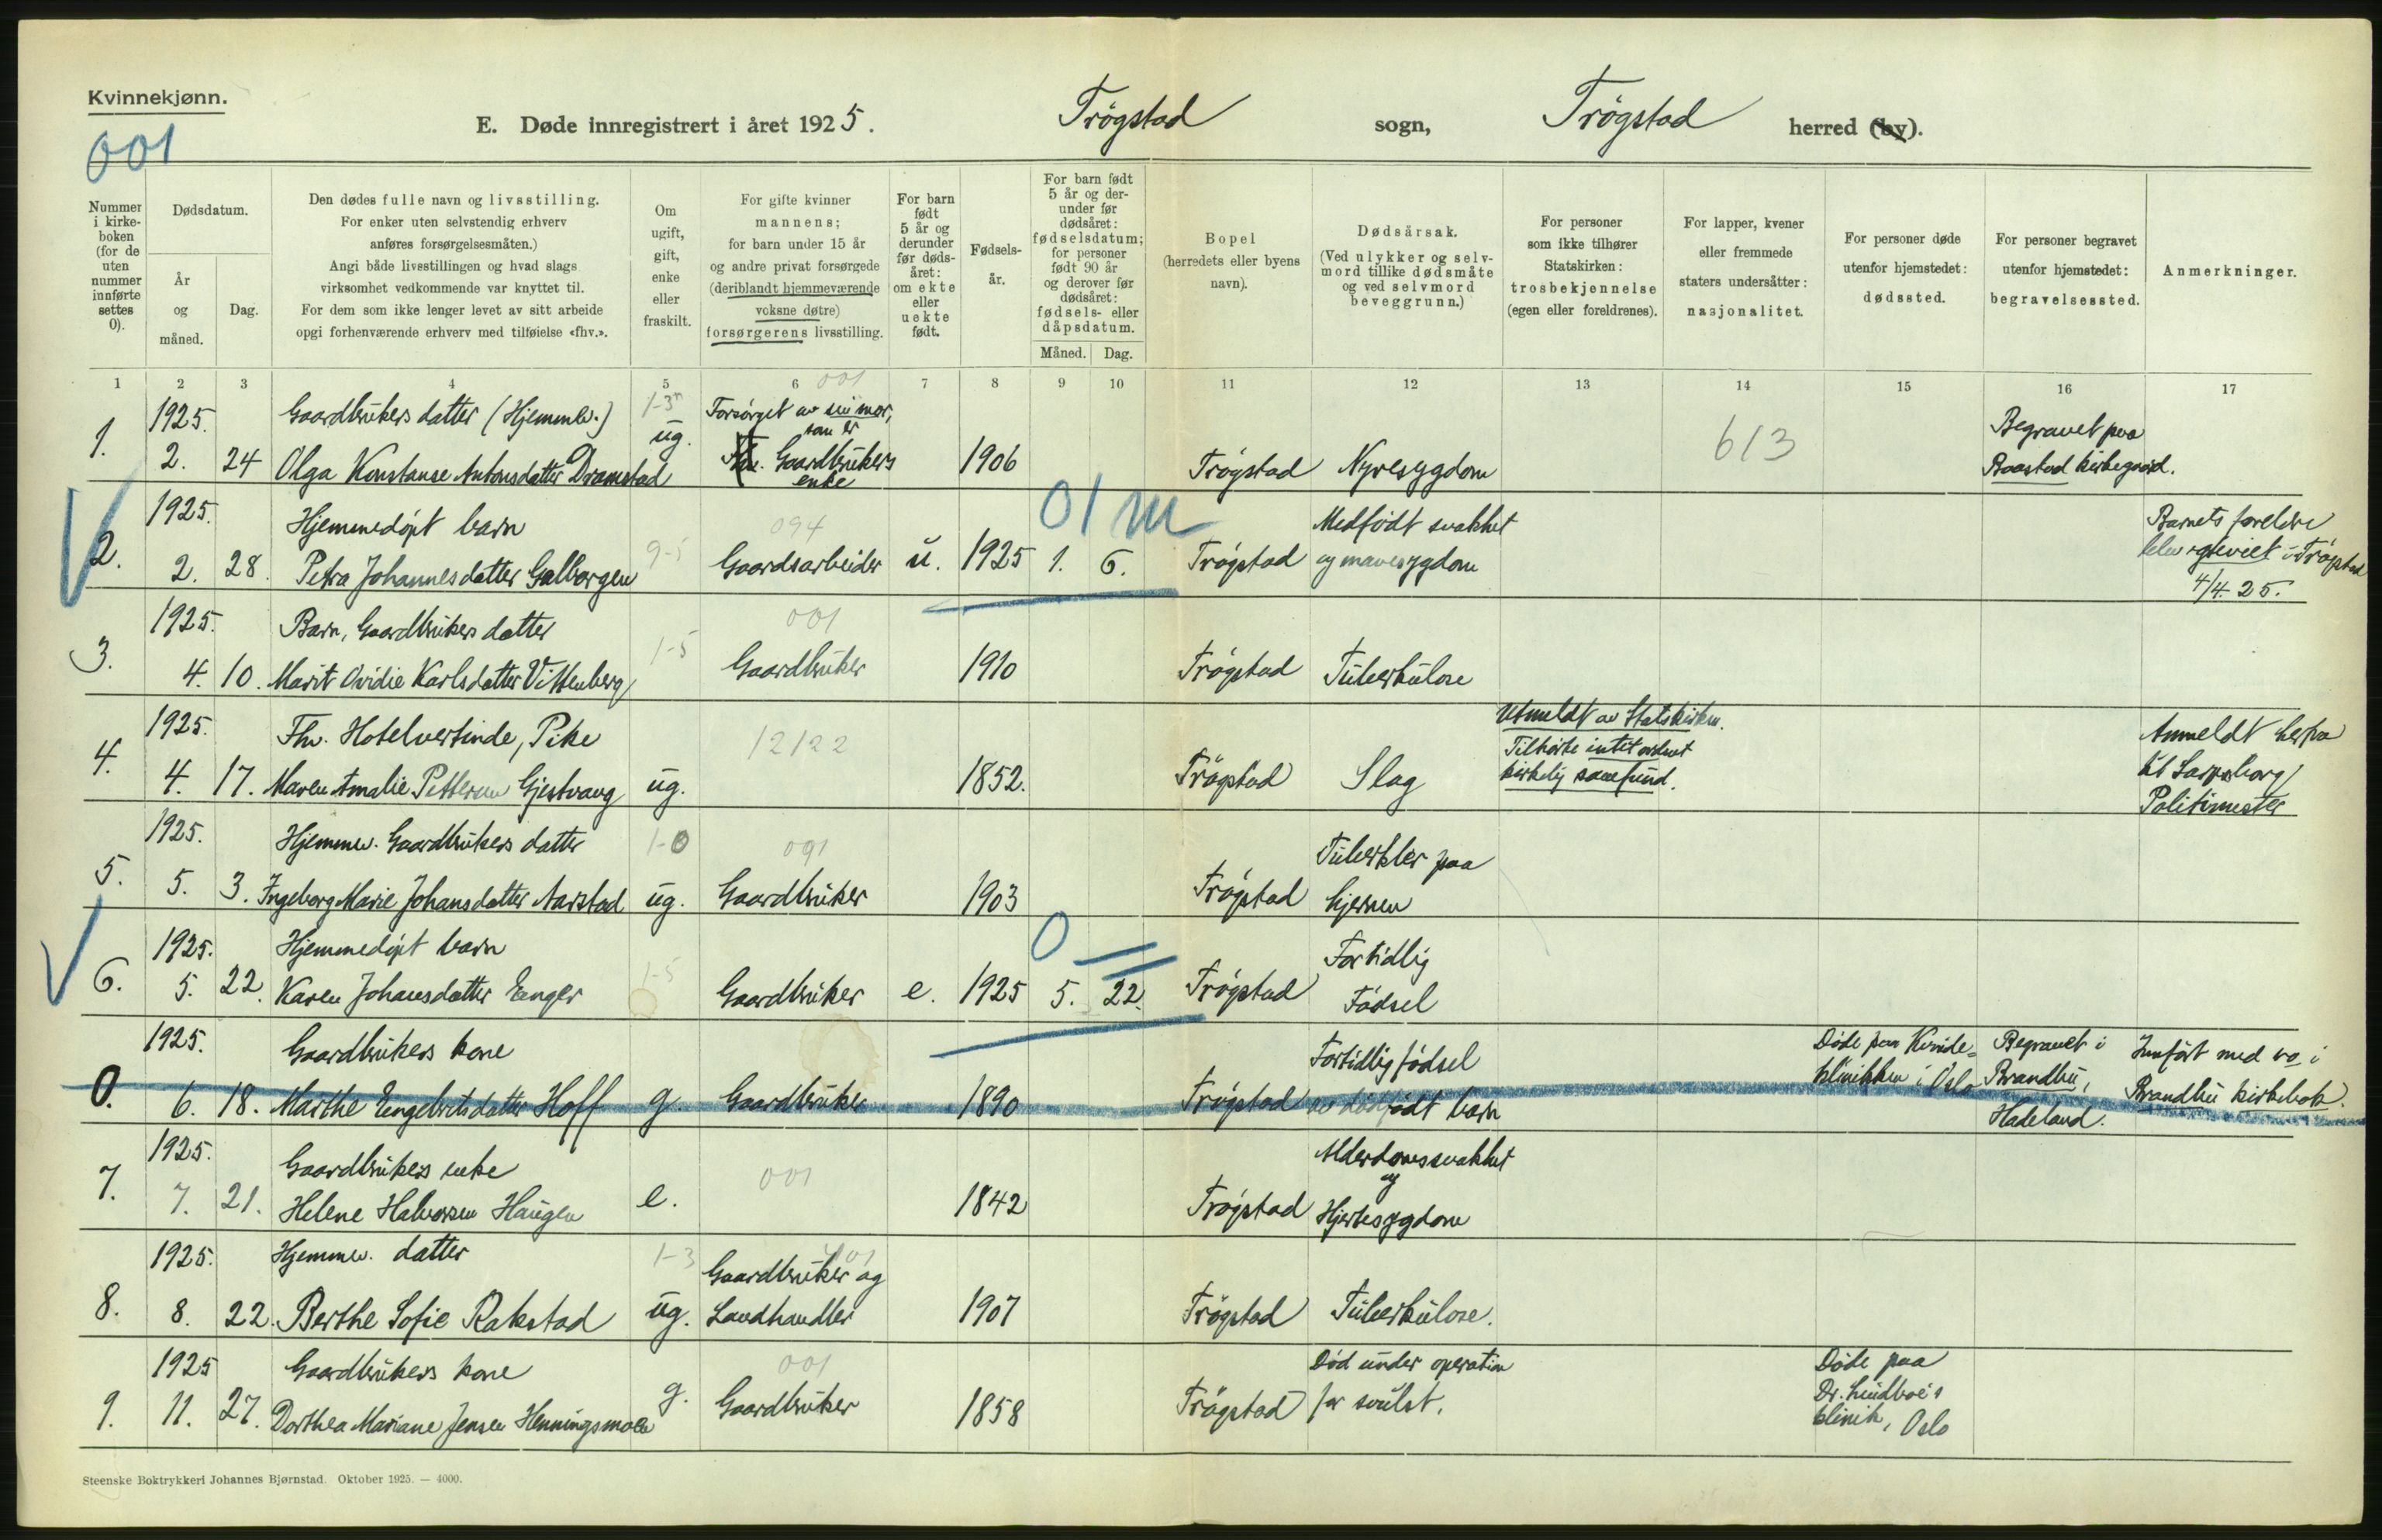 Kvinnekjønn.
001
E. Døde innregistrert i året 1925. Trøgstad sogn, Trøgstad herred (by).
Nummer i kirke- boken (for de uten nummer innførte settes 0).
Dødsdatum.
År og måned.
Dag.
Den dødes fulle navn og livsstilling.
For enker uten selvstendig erhverv
anføres forsørgelsesmåten.)
Angi både livsstillingen og hvad slags
virksomhet vedkommende var knyttet til.
For dem som ikke lenger levet av sitt arbeide
opgi forhenværende erhverv med tilføielse «fhv.».
Om ugift, gift, enke eller fraskilt.
For gifte kvinner
mannens;
for barn under 15 år
og andre privat forsørgede
(deriblandt hjemmeværende
voksne døtre)
forsørgerens livsstilling.
For barn født 5 år og derunder før døds- året: om ekte eller uekte født.
Fødsels- år.
For barn født 5 år og der- under før dødsåret: fødselsdatum; for personer født 90 år og derover før dødsåret: fødsels- eller dåpsdatum.
Måned. Dag.
Bopel
(herredets eller byens
navn).
Dødsårsak.
(Ved ulykker og selv-
mord tillike dødsmåte
og ved selvmord
beveggrunn.)
For personer
som ikke tilhører
Statskirken:
trosbekjennelse
(egen eller foreldrenes).
For lapper, kvener
eller fremmede
staters undersåtter:
nasjonalitet.
For personer døde
utenfor hjemstedet:
dødssted.
For personer begravet
utenfor hjemstedet:
begravelsessted.
Anmerkninger.
1 2 3 4 5 6 7 8 9 10 11 12 13 14 15 16 17
001
1. 1925. 2. 24
Gaardbrukers datter (Hjemmev.)
Olga Konstanse Antonsdatter Dramstad
1-3
ug.
Forsørget av sin mor,
som er
Gaardbrukers
enke
1906
Trøgstad
Nyresygdom
613
Begravet paa
Baastad kirkegaard.
2. 1925. 2. 28.
Hjemmedøpt barn
Petra Johannesdatter Galborgen
9-5
094
Gaardsarbeider
u. 1925 1. 6.
01 m
Trøgstad
Medfødt svakhet
og mavesygdom
Barnets foreldre
blev gteviet i Trøgstad
4/4. 25.
3. 1925. 4. 10.
Barn, Gaardbrukers datter
Marit Ovidie Karlsdatter Vittenberg
1-5
001
Gaardbruker
1910
Trøgstad
Tuberkulose
4. 1925. 4. 17.
Fhv. Hotelvertinde, Pike
Maren Amalie Pettersen Gjestvang
ug.
12122
1852.
Trøgstad
Slag
Utmeldt av Statskirken.
Tilhørte intet ordnet
kirkelig samfund.
Anmeldt herfra
til Sarpsborg
Politimester
5. 1925. 5. 3.
Hjemmev. Gaardbrukers datter
Ingeborg Marie Johansdatter Aarstad
1-0
ug.
001
Gaardbruker
1903
Trøgstad
Tuberkler paa
hjernen
6. 1925. 5. 22.
Hjemmedøpt barn
Karen Johansdatter Enger
1-5
Gaardbruker
e. 1925 5. 22.
0
Trøgstad
Fortidlig
Fødsel
0. 1925. 6. 18.
Gaardbrukers kone
Marthe Engebretsdatter Hoff
g.
Gaardbruker
1890
Trøgstad
Fortidlig fødsel
av dødfødt barn
Døde paa Kvinde-
klinikken i Oslo
Begravet i
Brandbu,
Hadeland.
Innført med no i
Brandbu kirkebok.
7. 1925. 7. 21.
Gaardbrukers enke
Helene Halvorsen Haugen
e.
001
1842
Trøgstad
Alderdomssvakhet
og
Hjertesygdom
8. 1925. 8. 22.
Hjemmev. datter
Berthe Sofie Rakstad
1-3
ug.
001
Gaardbruker og
Landhandler
1907
Trøgstad
Tuberkulose.
9. 1925 11. 27.
Gaardbrukers kone
Dorthea Mariane Jensen Henningsmoen
g.
001
Gaardbruker
1858
Trøgstad
Død under operation
for svulst.
Døde paa
Dr. Lindboe's
klinik, Oslo
Steenske Boktrykkeri Johannes Bjørnstad. Oktober 1925. — 4000.